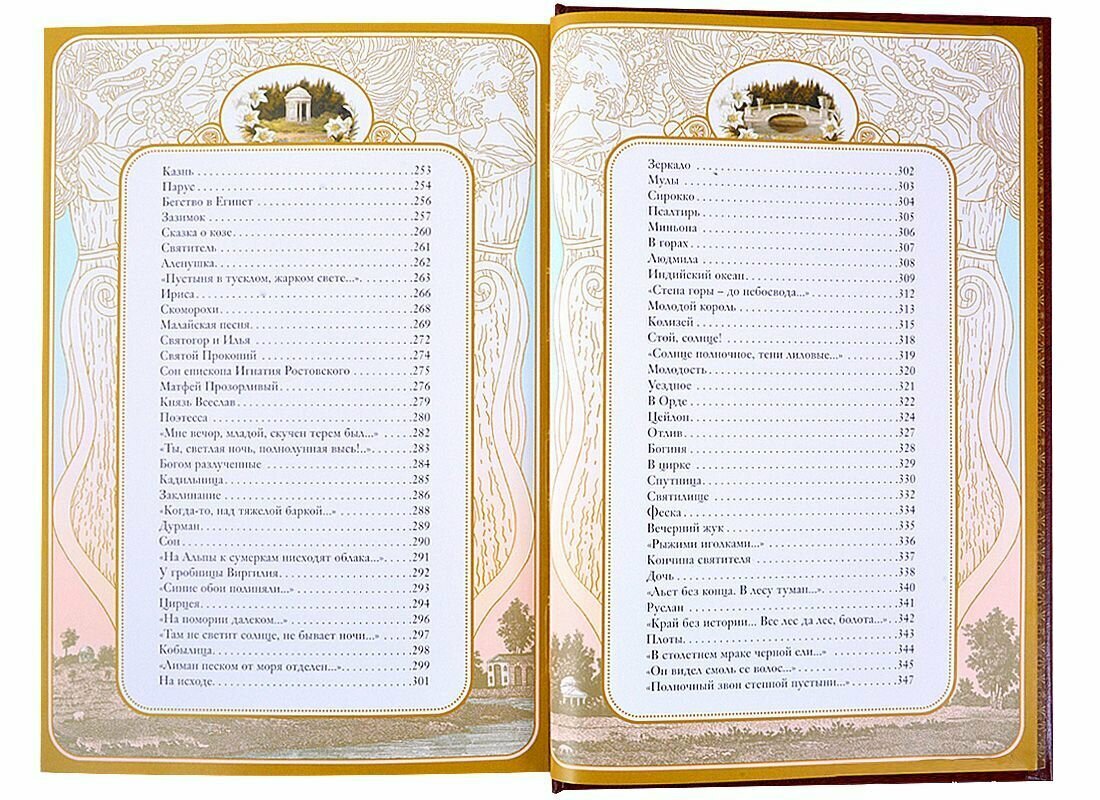 Казнь ..... 253
Парус ..... 254
Бегство в Египет ..... 256
Зазимок ..... 257
Сказка о козе ..... 260
Святитель ..... 261
Аленушка ..... 262
«Пустыня в тусклом, жарком свете...» ..... 263
Ириса ..... 266
Скоморохи ..... 268
Малайская песня ..... 269
Святогор и Илья ..... 272
Святой Прокопий ..... 274
Сон епископа Игнатия Ростовского ..... 275
Матфей Прозорливый ..... 276
Князь Всеслав ..... 279
Поэтесса ..... 280
«Мне вечор, младой, скучен терем был...» ..... 282
«Ты, светлая ночь, полнолунная высь!..» ..... 283
Богом разлученные ..... 284
Кадильница ..... 285
Заклинание ..... 286
«Когда-то, над тяжелой баркой...» ..... 288
Дурман ..... 289
Сон ..... 290
«На Альпы к сумеркам нисходят облака...» ..... 291
У гробницы Виргилия ..... 292
«Синие обои полиняли...» ..... 293
Цирцея ..... 294
«На помории далеком...» ..... 296
«Там не светит солнце, не бывает ночи...» ..... 297
Кобылица ..... 298
«Лиман песком от моря отделен...» ..... 299
На исходе ..... 301
Зеркало ..... 302
Мулы ..... 303
Сирокко ..... 304
Псалтирь ..... 305
Миньона ..... 306
В горах ..... 307
Людмила ..... 308
Индийский океан ..... 309
«Стена горы – до небосвода...» ..... 312
Молодой король ..... 313
Колизей ..... 315
Стой, солнце! ..... 318
«Солнце полночное, тени лиловые...» ..... 319
Молодость ..... 320
Уездное ..... 321
В Орде ..... 322
Цейлон ..... 324
Отлив ..... 327
Богиня ..... 328
В цирке ..... 329
Спутница ..... 330
Святилище ..... 332
Феска ..... 334
Вечерний жук ..... 335
«Рыжими иголками...» ..... 336
Кончина святителя ..... 337
Дочь ..... 338
«Льет без конца. В лесу туман...» ..... 340
Руслан ..... 341
«Край без истории... Все лес да лес, болота...» ..... 342
Плоты ..... 343
«В столетнем мраке черной ели...» ..... 344
«Он видел смоль ее волос...» ..... 345
«Полночный звон степной пустыни...» ..... 347